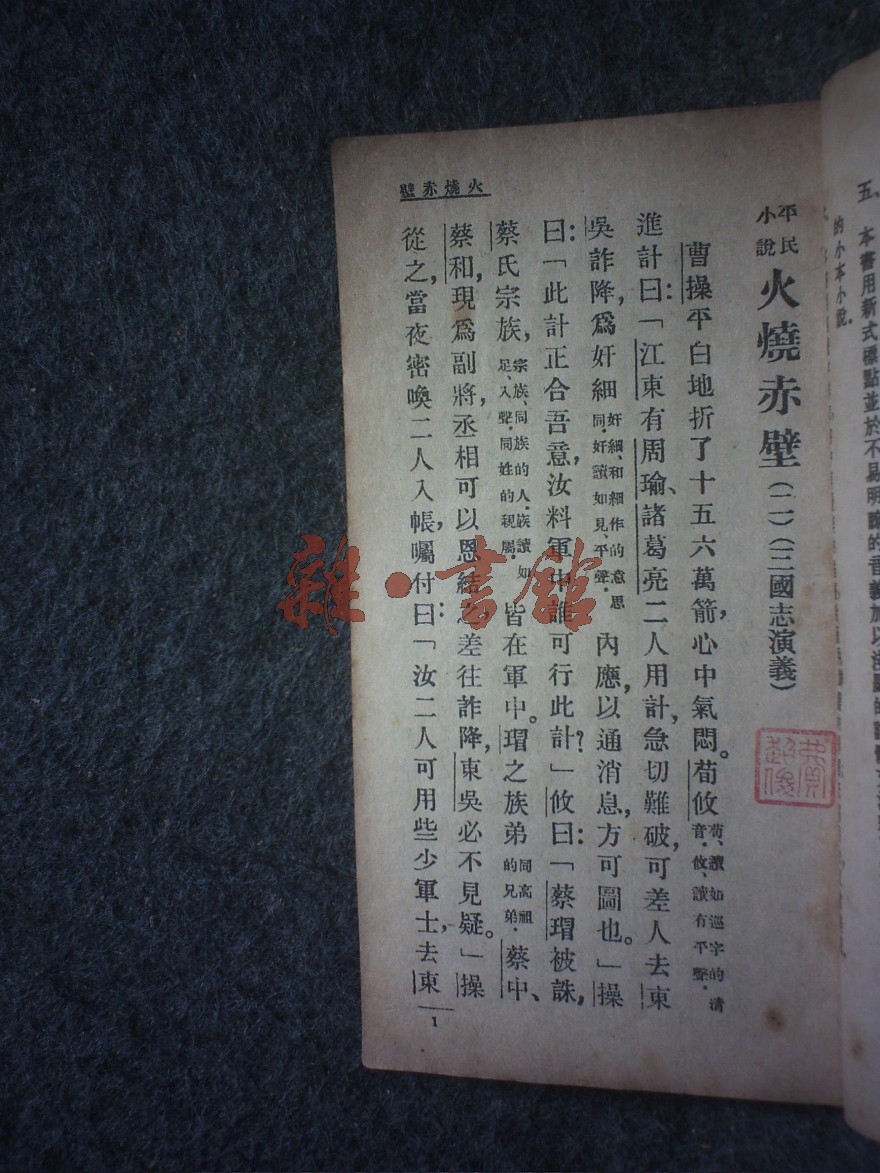 五、本書用新式標點並於不易明瞭的音義加以淺顯的
的小本小說。
平民小說 火燒赤壁(二)(三國志演義)
曹操平白地折了十五六萬箭,心中氣悶。荀攸荀、讀如巡字的清音。攸、讀有平聲。
進計曰:「江東有周瑜、諸葛亮二人用計,急切難破,可差人去東
吳詐降,爲奸細奸細、和細作的意思同。奸讀如見、平聲。內應,以通消息,方可圖也。」操
曰:「此計正合吾意,汝料軍中誰可行此計?」攸曰:「蔡瑁被誅,
蔡氏宗族,宗族、同族的人。族讀如足、入聲。同姓的親屬。皆在軍中。瑁之族弟同高祖的兄弟。蔡中、
蔡和,現爲副將,丞相可以恩結之,差往詐降,東吳必不見疑。」操
從之,當夜密喚二人入帳,囑付曰:「汝二人可用些少軍士,去東
火燒赤壁
1
雜·書館